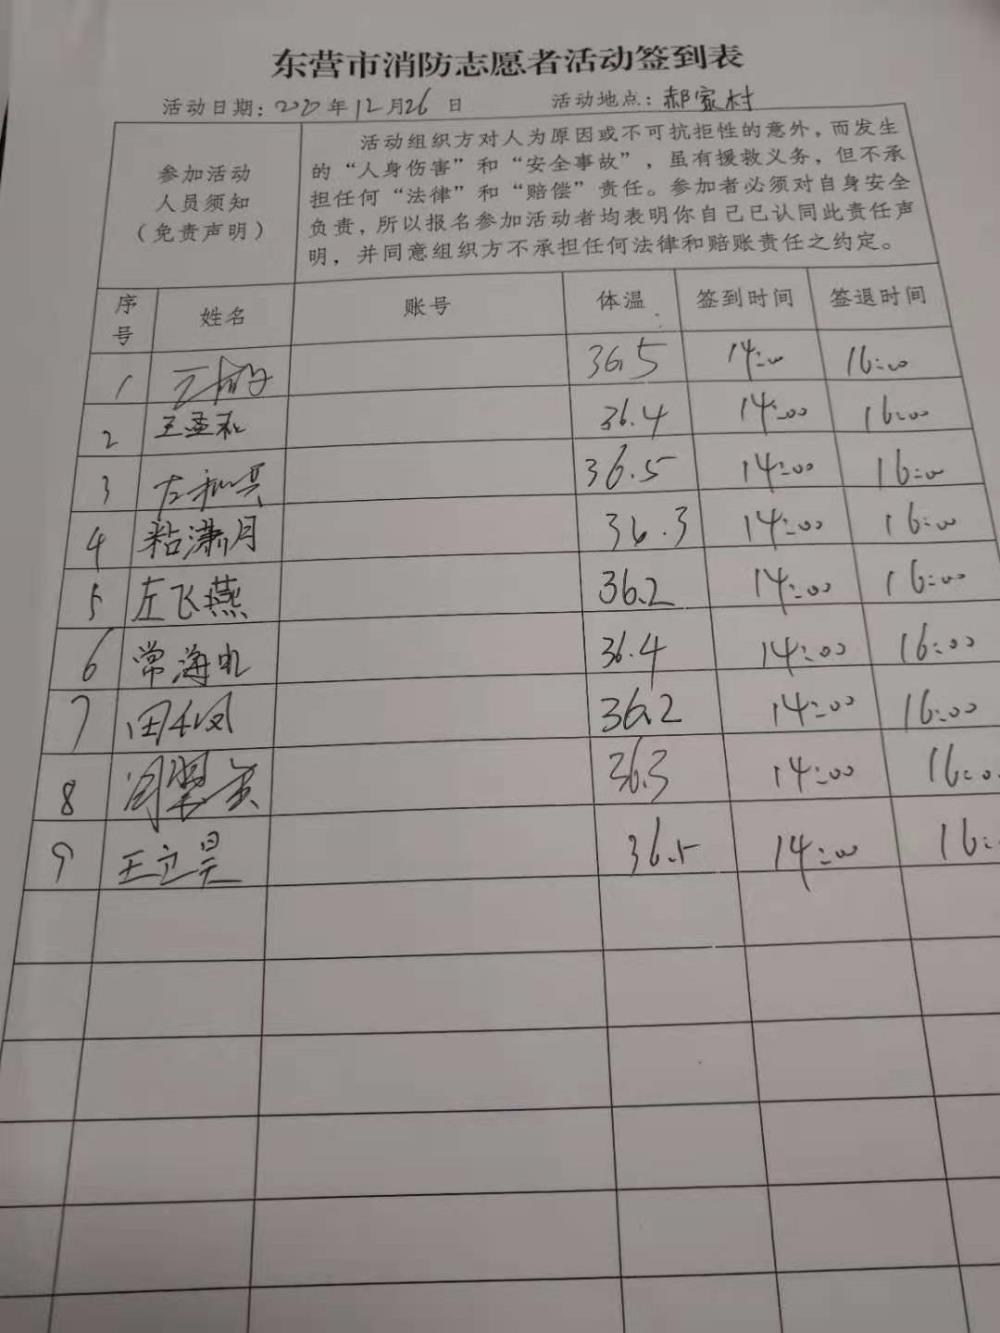 东营市消防志愿者活动签到表
活动日期：2020年12月26日 活动地点：郝家村
参加活动
人员须知
（免责声明）
活动组织方对人为原因或不可抗拒性的意外，而发生
的“人身伤害”和“安全事故”，虽有援救义务，但不承
担任何“法律”和“赔偿”责任。参加者必须对自身安全
负责，所以报名参加活动者均表明你自己已认同此责任声
明，并同意组织方不承担任何法律和赔账责任之约定。
序号 姓名 账号 体温 签到时间 签退时间
1 36.5 14:00 16:00
2 王孟和 36.4 14:00 16:00
3 左 36.5 14:00 16:00
4 粘潇月 36.3 14:00 16:00
5 左飞燕 36.2 14:00 16:00
6 常海 36.4 14:00 16:00
7 田 36.2 14:00 16:00
8 周翠 36.3 14:00 16:00
9 王立昊 36.5 14:00 16: